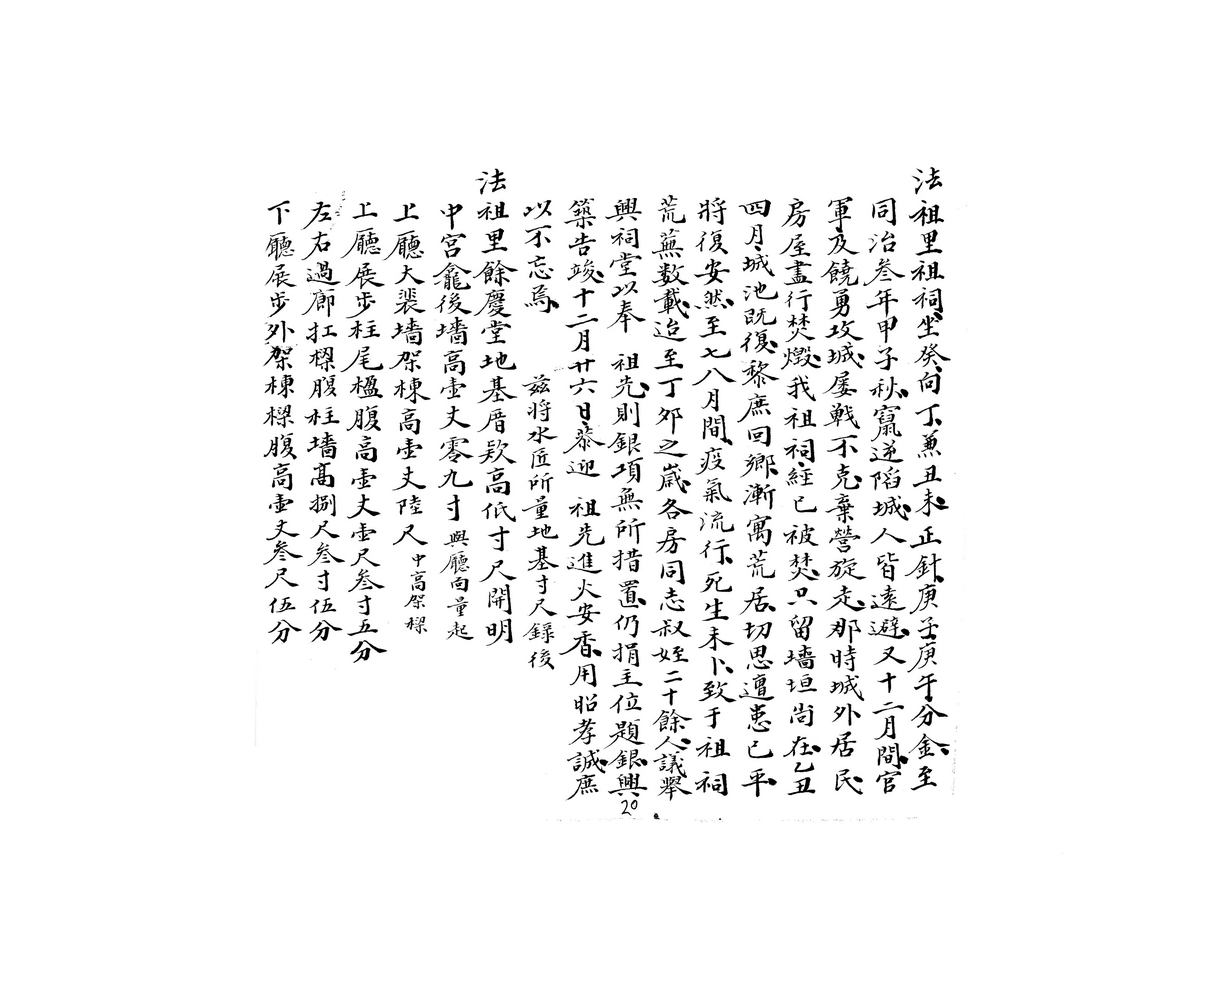 法祖里祖祠坐癸向丁兼丑未正針庚子庚午分金至
同治叁年甲子秋竄逆陷城人皆遠避又十二月間官
軍及饒勇攻城屡戰不克棄營旋走那時城外居民
房屋盡行焚燬我祖祠經已被焚只留墻垣尚在乙丑
四月城池既復黎庶回鄉漸寓荒居切思遭患已平
將復安然至七八月間疫氣流行死生未卜致于祖祠
荒蕪数載迨至丁夘之歲各房同志叔姪二十餘人議舉
興祠堂以奉 祖先則銀項無所措置仍捐主位題銀興
築告竣十二月廿六日恭迎 祖先進火安香用昭孝誠庶
以不忘焉 茲將水匠所量地基寸尺錄後
法祖里餘慶堂地基厝欵高低寸尺開明
中宮龕後墻高壹丈零九寸 與廳向量起
上廳大裴墻架棟高壹丈陸尺 中高架樑
上廳展步柱尾楹腹高壹丈壹尺叁寸五分
左右過廊扛樑腹柱墻髙捌尺叁寸伍分
下廳展步外架棟樑腹高壹丈叁尺伍分
20